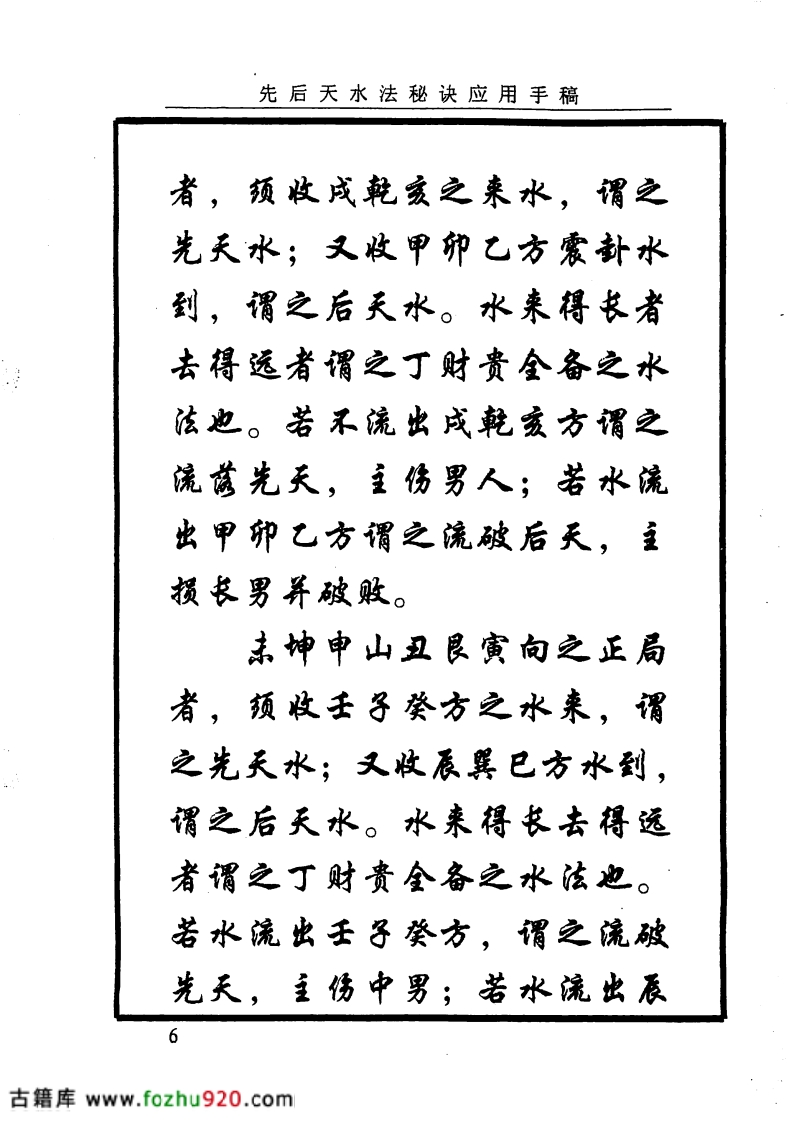 先后天水法秘诀应用手稿
者，须收戌乾亥之来水，谓之
先天水；又收甲卯乙方震卦水
到，谓之后天水。水来得长者
去得远者谓之丁财贵全备之水
法也。若不流出戌乾亥方谓之
流落先天，主伤男人；若水流
出甲卯乙方谓之流破后天，主
损长男并破败。
未坤申山丑艮寅向之正局
者，须收壬子癸方之水来，谓
之先天水；又收辰巽巳方水到，
谓之后天水。水来得长去得远
者谓之丁财贵全备之水法也。
若水流出壬子癸方，谓之流破
先天，主伤中男；若水流出辰
6
古籍库 www.fozhu920.com